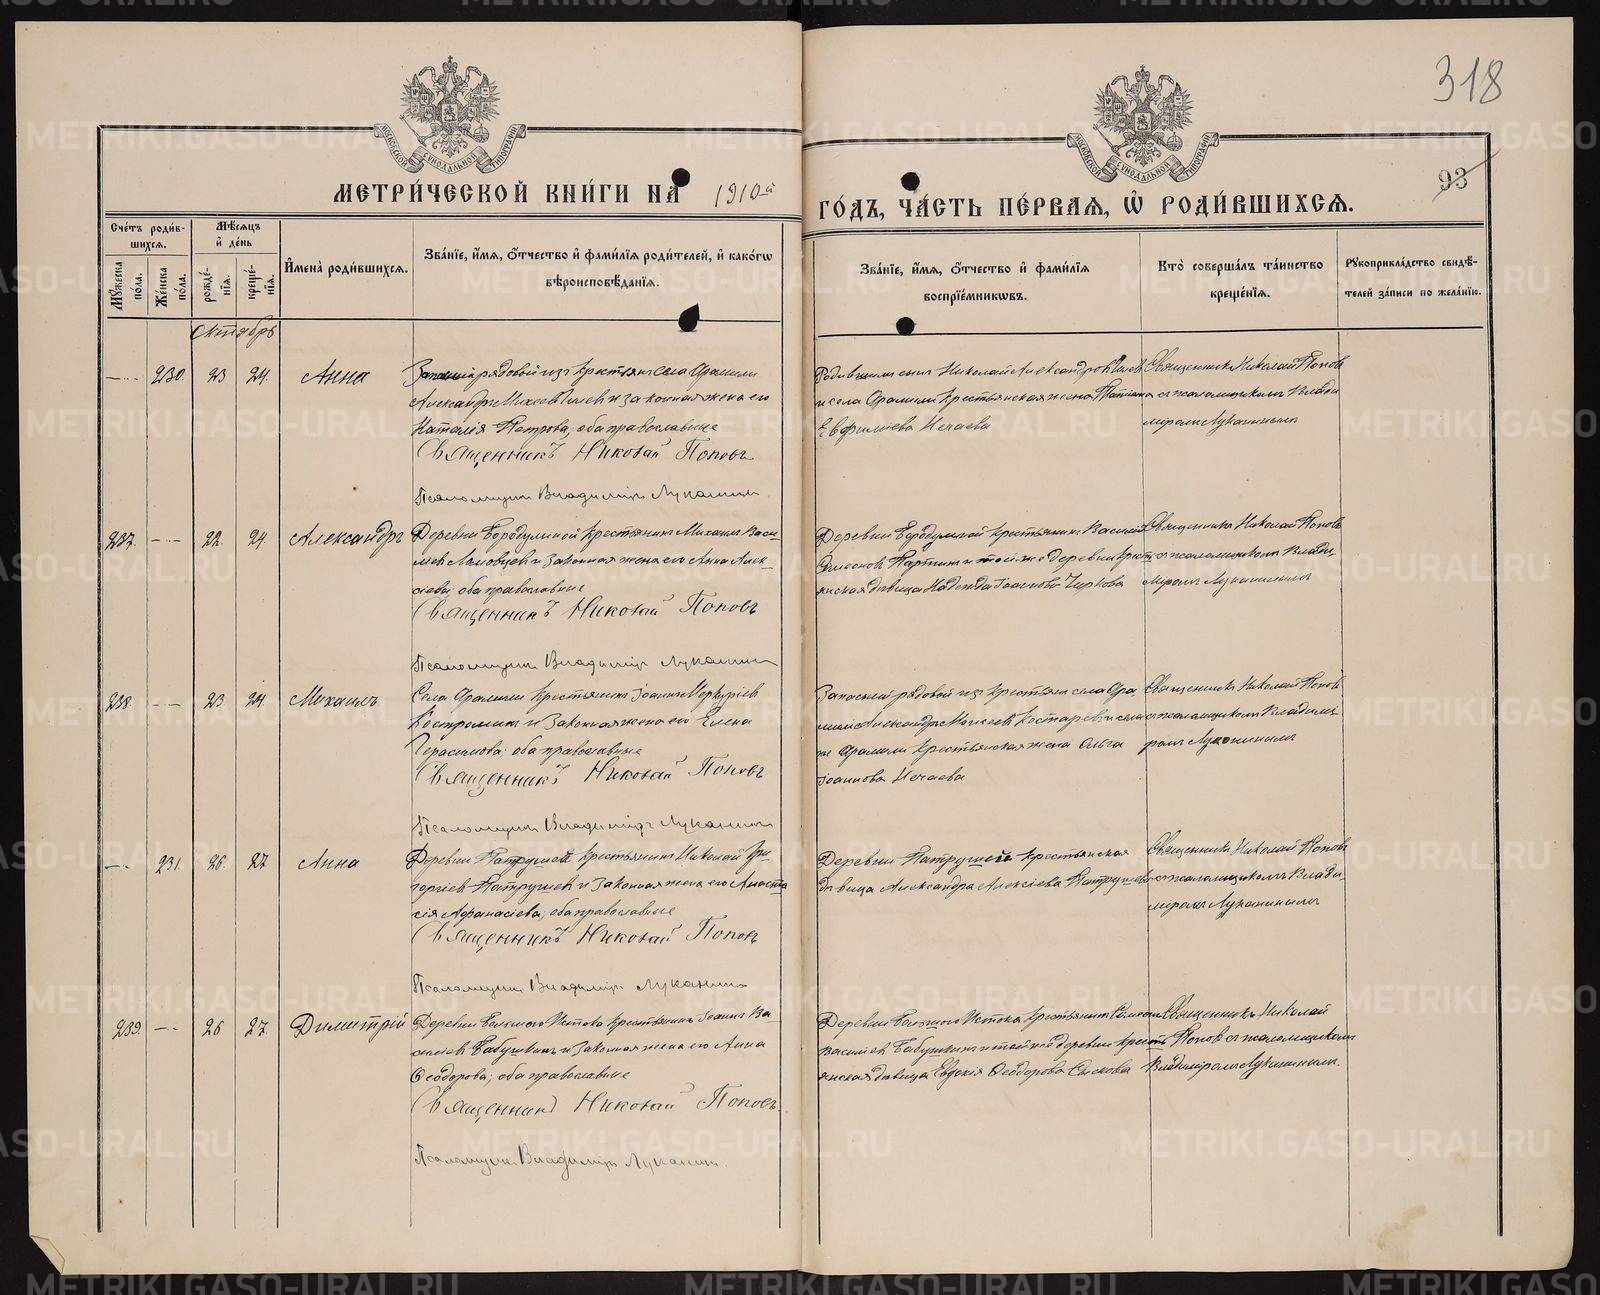 318
93
МЕТРИЧЕСКОЙ КНИГИ НА 1910й ГОДЪ, ЧАСТЬ ПЕРВАЯ, Ѡ РОДИВШИХСЯ.
Счетъ родив-
шихся.
Мѣсяцъ
и день
Мужеска
пола.
Женска
пола.
рожде-
нія.
креще-
нія.
Имена родившихся.
Званіе, имя, отчество и фамилія родителей, и какогѡ
вѣроисповѣданія.
Званіе, имя, отчество и фамилія
воспріемникѡвъ.
Кто совершалъ таинство
крещенія.
Рукоприкладство свидѣ-
телей записи по желанію.
Октябрь
230. 23 24. Анна
Запасный рядовой изъ крестьянъ села Арамили
Александръ Михеевъ и законная жена его
Наталія Петрова, оба православные
Священникъ Николай Поповъ
Псаломщикъ Владиміръ Луканинъ
сынъ Николай Александровъ
и села Арамили крестьянская жена Татіана
Евфиміева Нечаева
Священникъ Николай Поповъ
съ псаломщикомъ Влади
міромъ Луканинымъ
237. 22 24 Александръ
Деревни Бородулиной крестьянинъ Михаилъ Васи-
льевъ и законная жена его Анна Алек-
сіева, оба православные
Священникъ Николай Поповъ
Псаломщикъ Владиміръ Луканинъ
Деревни Бородулиной крестьянинъ Василій
Симеоновъ и той же деревни крест
янская дѣвица Надежда Іоаннова Чиркова
Священникъ Николай Поповъ
съ псаломщикомъ Влади-
міромъ Луканинымъ
238. 23 24 Михаилъ
Села Арамили крестьянинъ Іоаннъ Меркуріевъ
Костроминъ и законная жена его Елена
Герасимова, оба православные
Священникъ Николай Поповъ
Псаломщикъ Владиміръ Луканинъ
Запасный рядовой изъ крестьянъ села Ара
мили Александръ Моисеевъ Костаревъ и села
же Арамили крестьянская жена Ольга
Іоаннова Нечаева
Священникъ Николай Поповъ
съ псаломщикомъ Владимі-
ромъ Луканинымъ
231. 26. 27 Анна
Деревни Патрушей крестьянинъ Николай Гри-
горіевъ Патрушевъ и законная жена его Анаста
сія Афанасіева, оба православные
Священникъ Николай Поповъ
Псаломщикъ Владиміръ Луканинъ
Деревни Патрушей крестьянская
дѣвица Александра Алексіева Патрушева
Священникъ Николай Поповъ
съ псаломщикомъ Влади-
міромъ Луканинымъ
239. 26 27. Димитрій
Деревни Большого Истока крестьянинъ Іоаннъ Ва-
силіевъ Бабушкинъ и законная жена его Анна
Ѳеодорова, оба православные
Священникъ Николай Поповъ
Псаломщикъ Владиміръ Луканинъ
Деревни Большого Истока крестьянинъ Симеонъ
Василіевъ Бабушкинъ и той же деревни кресть
янская дѣвица Евдокія Ѳеодорова Сыскова
Священникъ Николай
Поповъ съ псаломщикомъ
Владиміромъ Луканинымъ.
METRIKI.GASO-URAL.RU